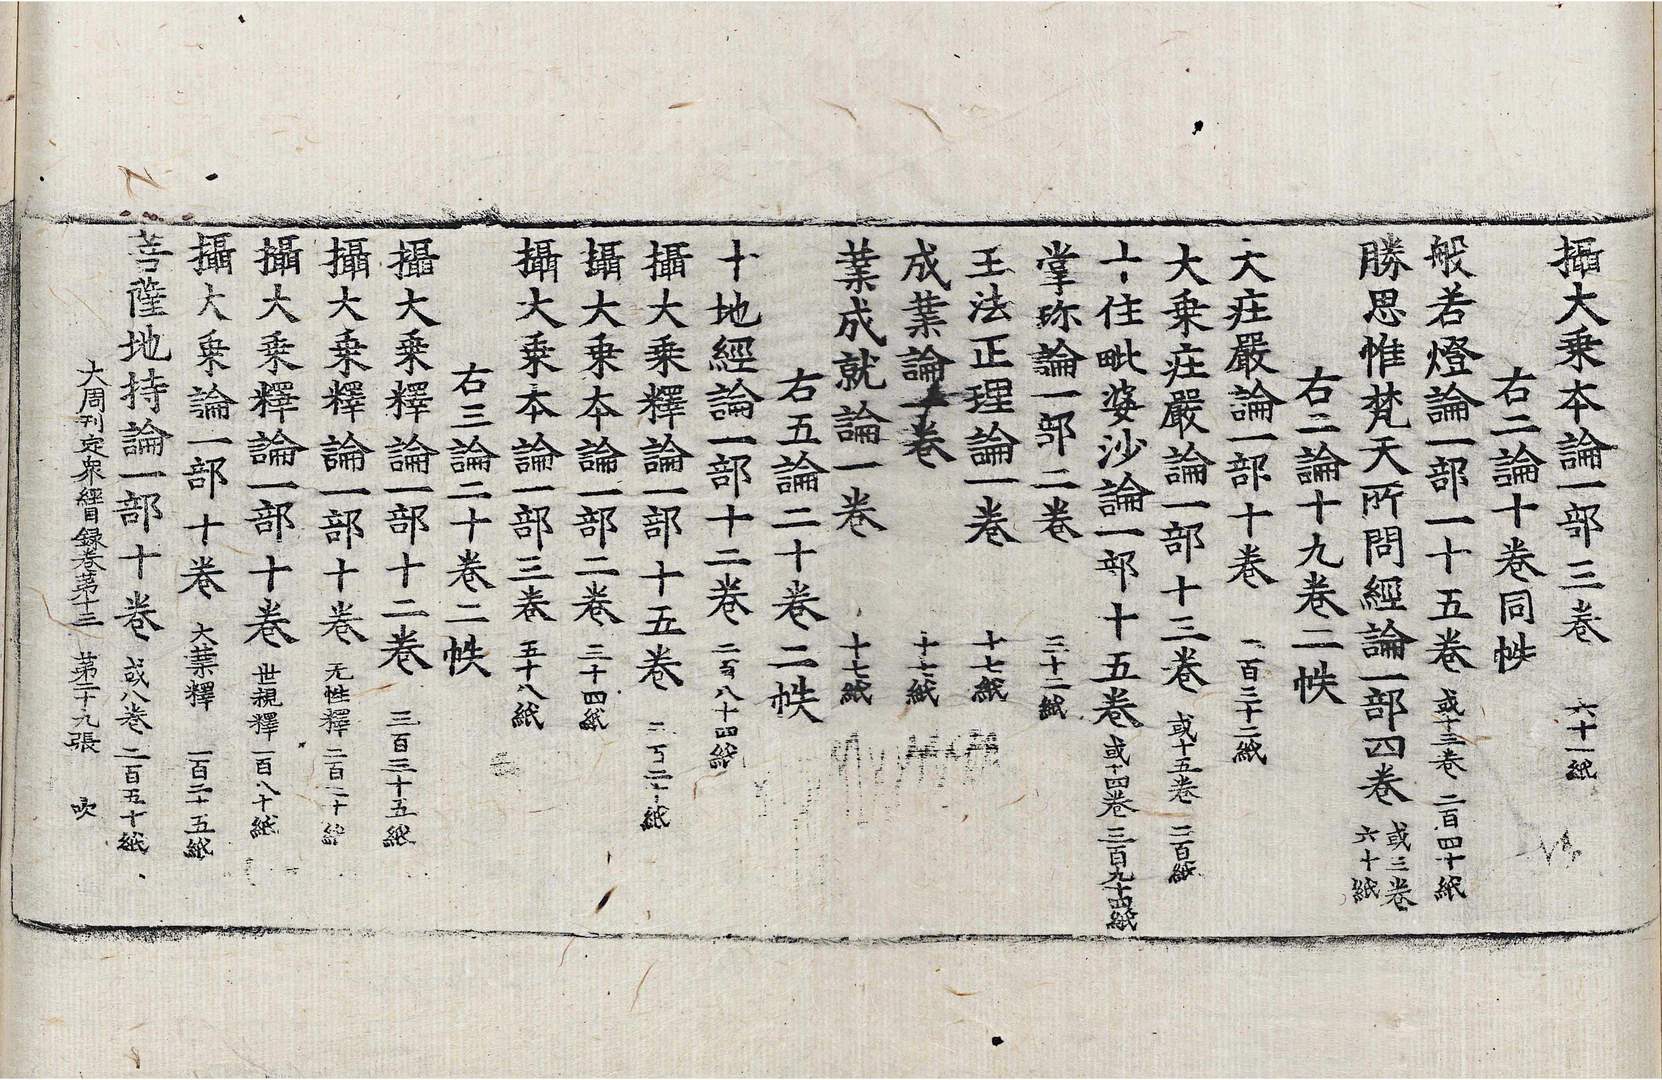 攝大乗本論一部三卷 六十一紙
右二論十卷同帙
般若燈論一部一十五卷 或十三卷 二百四十紙
勝思惟梵天所問經論一部四卷 或三卷 六十紙
右二論十九卷二帙
大庄嚴論一部十卷 一百三十二紙
大乗庄嚴論一部十三卷 或十五卷 二百紙
十住毗婆沙論一部十五卷 或十四卷 三百九十四紙
掌珎論一部二卷 三十二紙
王法正理論一卷 十七紙
成業論一卷 十七紙
業成就論一卷 十七紙
右五論二十卷二帙
十地經論一部十二卷 二百八十四紙
攝大乗釋論一部十五卷
攝大乗本論一部二卷 三十四紙
攝大乗本論一部三卷 五十八紙
右三論二十卷二帙
攝大乗釋論一部十二卷 三百三十五紙
攝大乗釋論一部十卷 无性釋 二百二十紙
攝大乗釋論一部十卷 世親釋 一百八十紙
攝大乗論一部十卷 大業釋 一百二十五紙
菩薩地持論一部十卷 或八卷 二百五十紙
大周刊定衆經目録卷第十三 第二十九張 吹